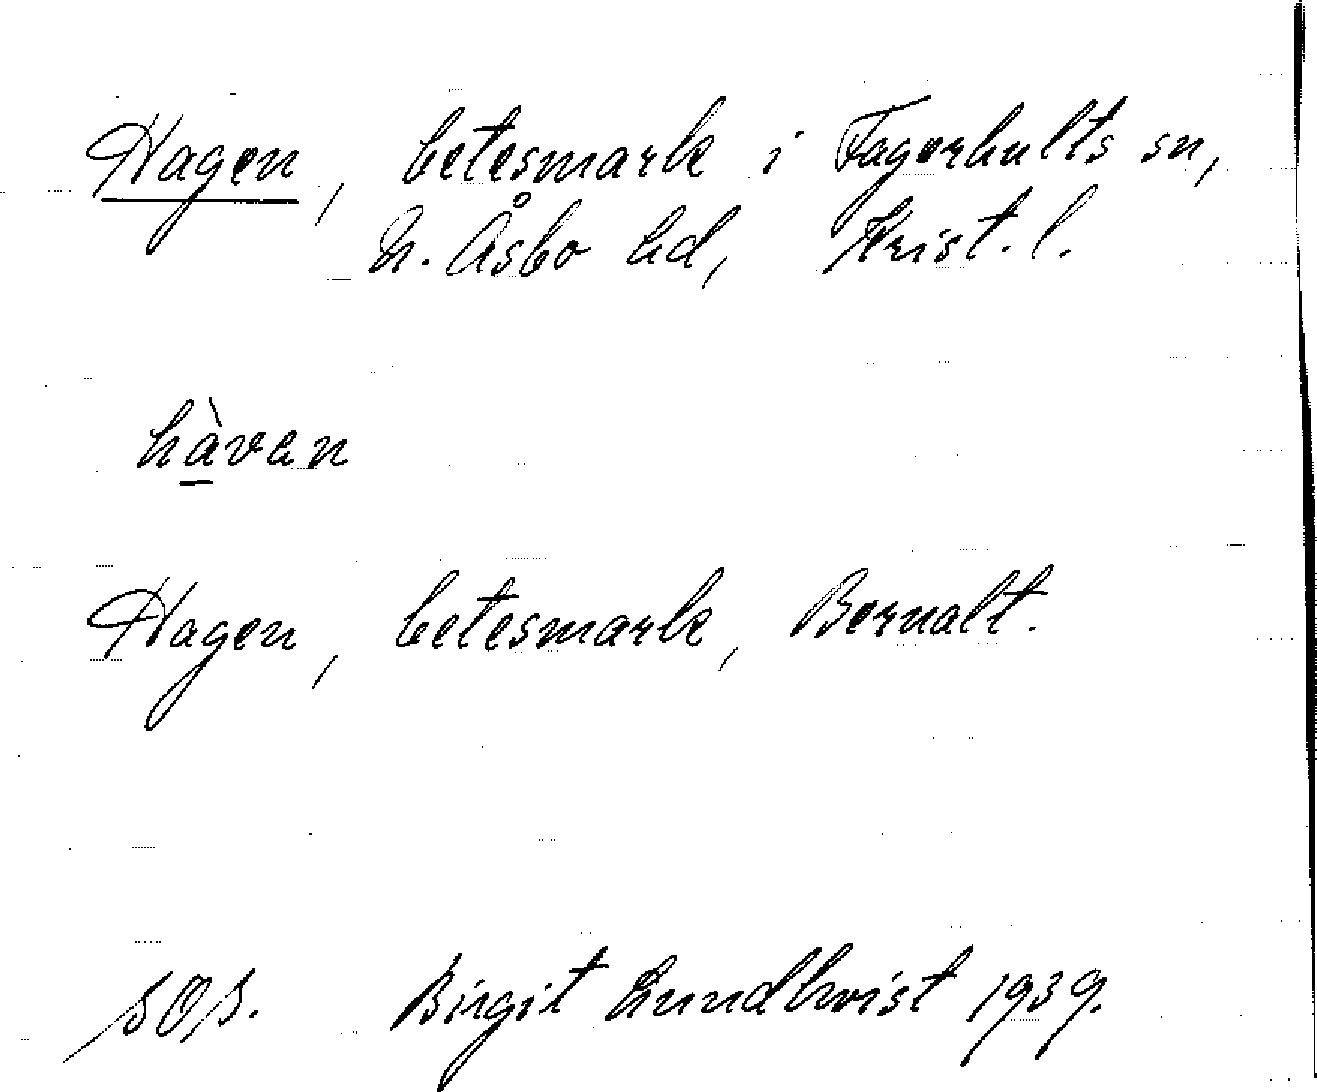 Hagen, betesmark i Fagerhults sn,
N. Åsbo hd, Krist. l.
hàvan
Hagen, betesmark, Bernalt.
SOS. Birgit Lundkvist 1939.